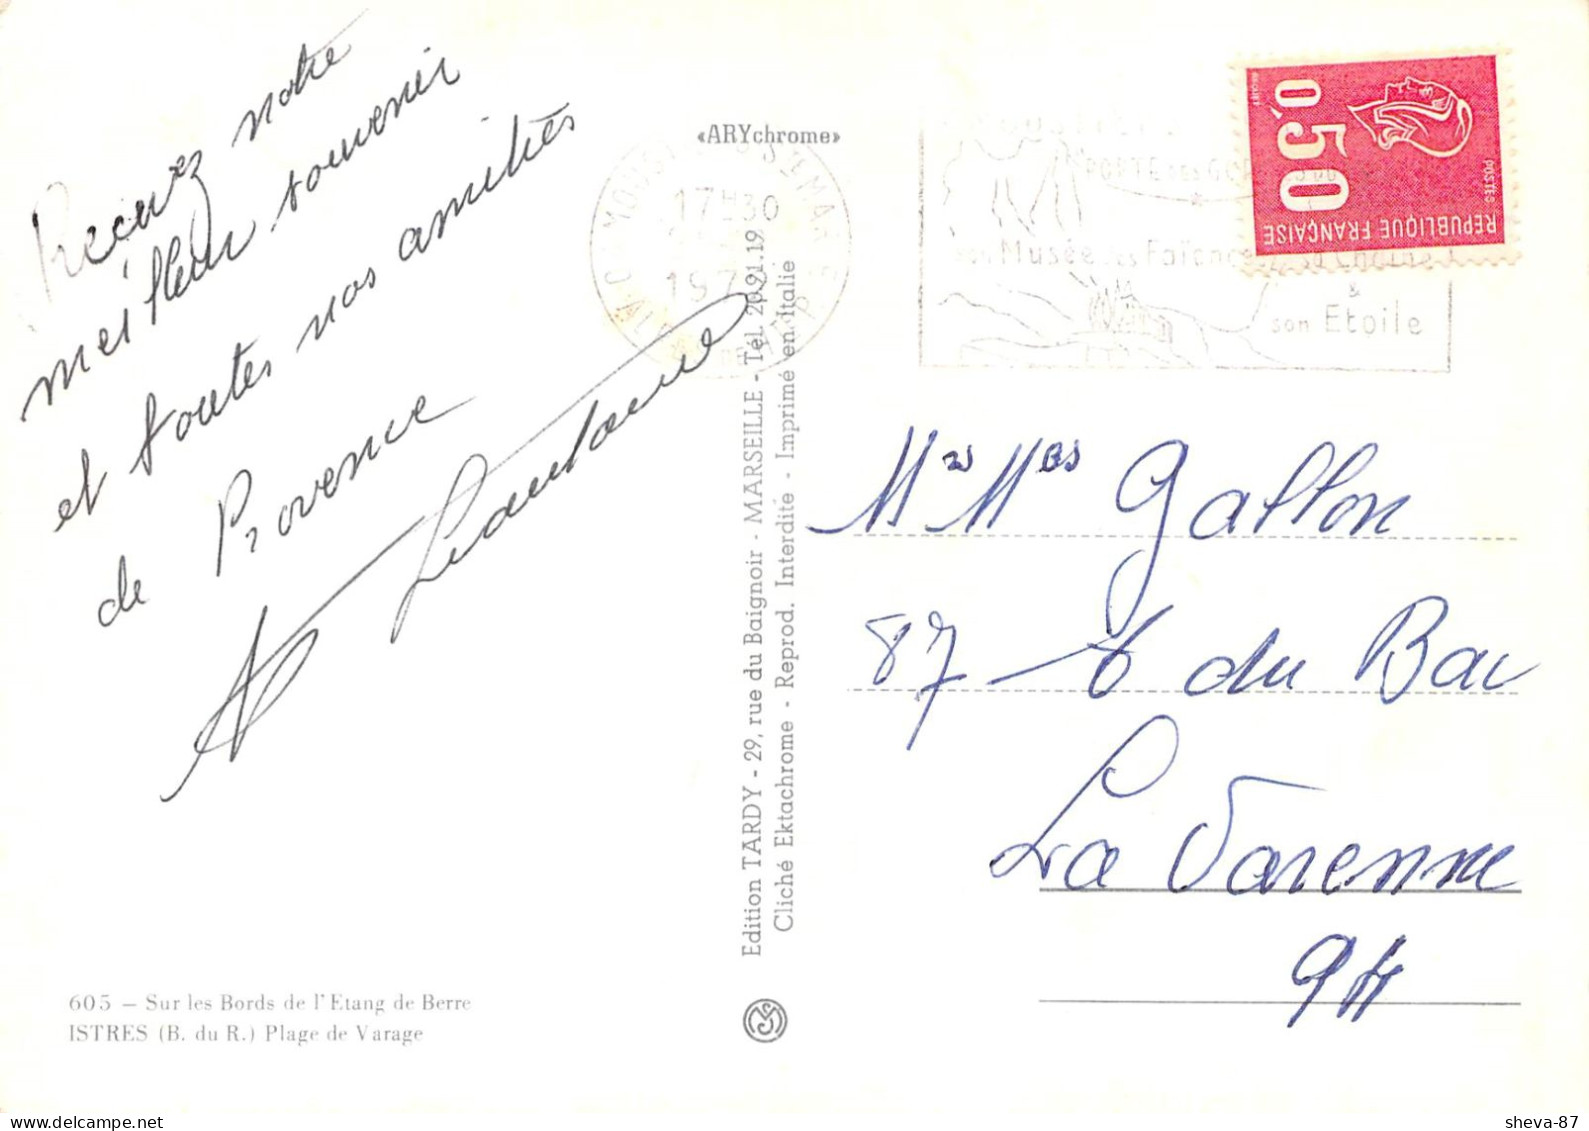 Recevez notre
meilleur souvenir
et toutes nos amitiés
de Provence
«ARYchrome»
17H30
197
MOUST
STE MARIE
PORTE DES GOR
son Musée des Faïences sa Chaîne
&
son Etoile
0,50
POSTES
REPUBLIQUE FRANÇAISE
Edition TARDY - 29, rue du Baignoir - MARSEILLE - Tél. 20.91.19
Cliché Ektachrome - Reprod. Interdite - Imprimé en Italie
Gallon
87 du Bac
La Varenne
94
605 — Sur les Bords de l'Etang de Berre
ISTRES (B. du R.) Plage de Varage
sheva-87